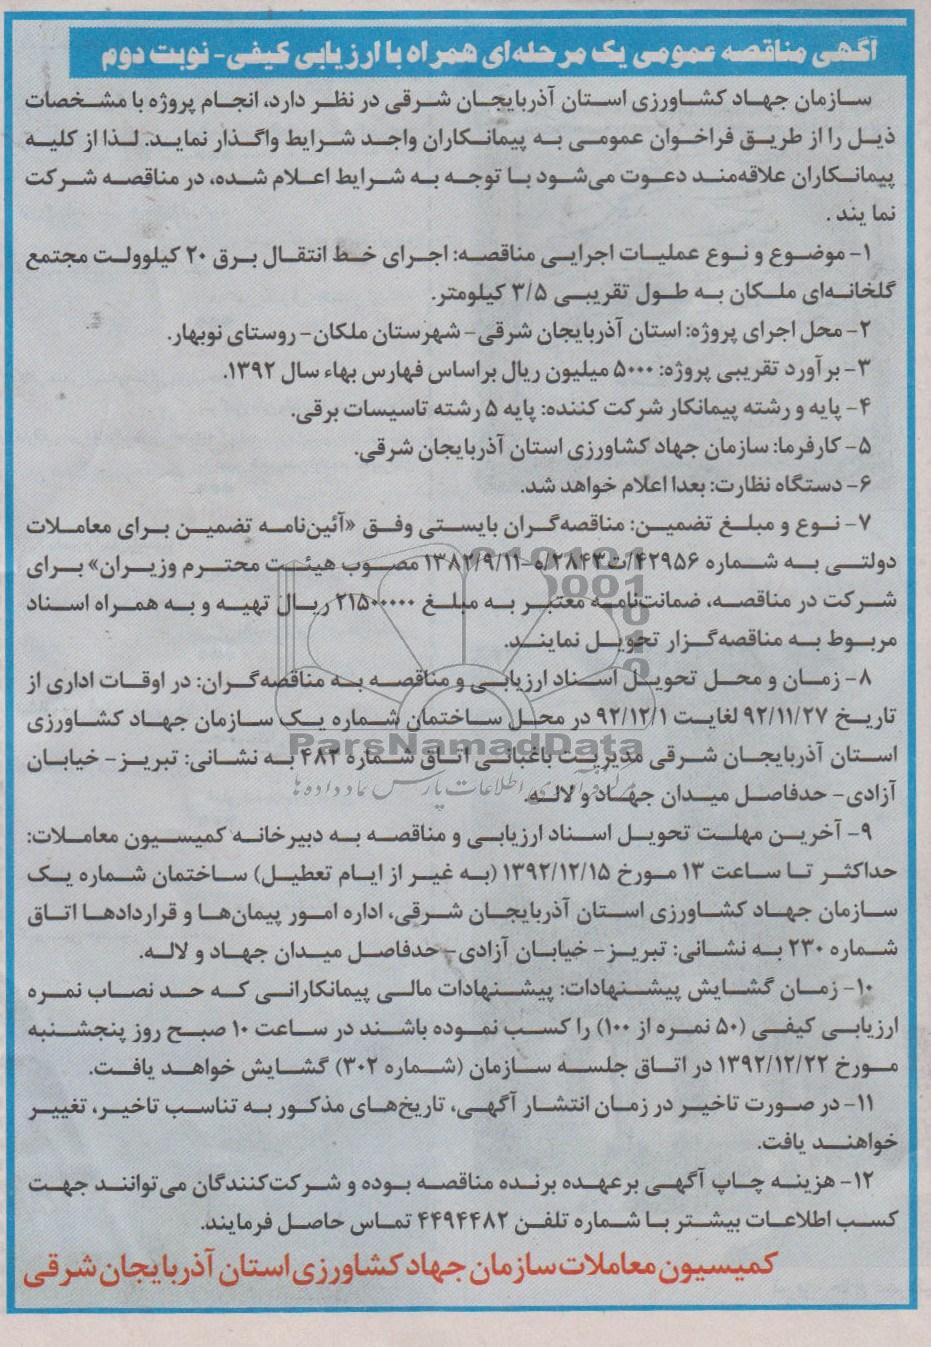 آگهی مناقصه عمومی یک مرحله‌ای همراه با ارزیابی کیفی- نوبت دوم
سازمان جهاد کشاورزی استان آذربایجان شرقی در نظر دارد، انجام پروژه با مشخصات
ذیل را از طریق فراخوان عمومی به پیمانکاران واجد شرایط واگذار نماید. لذا از کلیه
پیمانکاران علاقه‌مند دعوت می‌شود با توجه به شرایط اعلام شده، در مناقصه شرکت
نما یند .
۱- موضوع و نوع عملیات اجرایی مناقصه: اجرای خط انتقال برق ۲۰ کیلوولت مجتمع
گلخانه‌ای ملکان به طول تقریبی ۳/۵ کیلومتر.
۲- محل اجرای پروژه: استان آذربایجان شرقی- شهرستان ملکان- روستای نوبهار.
۳- برآورد تقریبی پروژه: ۵۰۰۰ میلیون ریال براساس فهارس بهاء سال ۱۳۹۲.
۴- پایه و رشته پیمانکار شرکت کننده: پایه ۵ رشته تاسیسات برقی.
۵- کارفرما: سازمان جهاد کشاورزی استان آذربایجان شرقی.
۶- دستگاه نظارت: بعدا اعلام خواهد شد.
۷- نوع و مبلغ تضمین: مناقصه‌گران بایستی وفق «آئین‌نامه تضمین برای معاملات
دولتی به شماره ۴۲۹۵۶/ت۲۸۴۳/ه-۱۳۸۲/۹/۱۱ مصوب هیئت محترم وزیران» برای
شرکت در مناقصه، ضمانت‌نامه معتبر به مبلغ ۲۱۵۰۰۰۰۰ ریال تهیه و به همراه اسناد
مربوط به مناقصه‌گزار تحویل نمایند.
۸- زمان و محل تحویل اسناد ارزیابی و مناقصه به مناقصه‌گران: در اوقات اداری از
تاریخ ۹۲/۱۱/۲۷ لغایت ۹۲/۱۲/۱ در محل ساختمان شماره یک سازمان جهاد کشاورزی
استان آذربایجان شرقی مدیریت باغبانی اتاق شماره ۴۸۲ به نشانی: تبریز- خیابان
آزادی- حدفاصل میدان جهاد و لاله.
۹- آخرین مهلت تحویل اسناد ارزیابی و مناقصه به دبیرخانه کمیسیون معاملات:
حداکثر تا ساعت ۱۳ مورخ ۱۳۹۲/۱۲/۱۵ (به غیر از ایام تعطیل) ساختمان شماره یک
سازمان جهاد کشاورزی استان آذربایجان شرقی، اداره امور پیمان‌ها و قراردادها اتاق
شماره ۲۳۰ به نشانی: تبریز- خیابان آزادی- حدفاصل میدان جهاد و لاله.
۱۰- زمان گشایش پیشنهادات: پیشنهادات مالی پیمانکارانی که حد نصاب نمره
ارزیابی کیفی (۵۰ نمره از ۱۰۰) را کسب نموده باشند در ساعت ۱۰ صبح روز پنجشنبه
مورخ ۱۳۹۲/۱۲/۲۲ در اتاق جلسه سازمان (شماره ۳۰۲) گشایش خواهد یافت.
۱۱- در صورت تاخیر در زمان انتشار آگهی، تاریخ‌های مذکور به تناسب تاخیر، تغییر
خواهند یافت.
۱۲- هزینه چاپ آگهی برعهده برنده مناقصه بوده و شرکت‌کنندگان می‌توانند جهت
کسب اطلاعات بیشتر با شماره تلفن ۴۴۹۴۴۸۲ تماس حاصل فرمایند.
کمیسیون معاملات سازمان جهاد کشاورزی استان آذربایجان شرقی
ParsNamadData